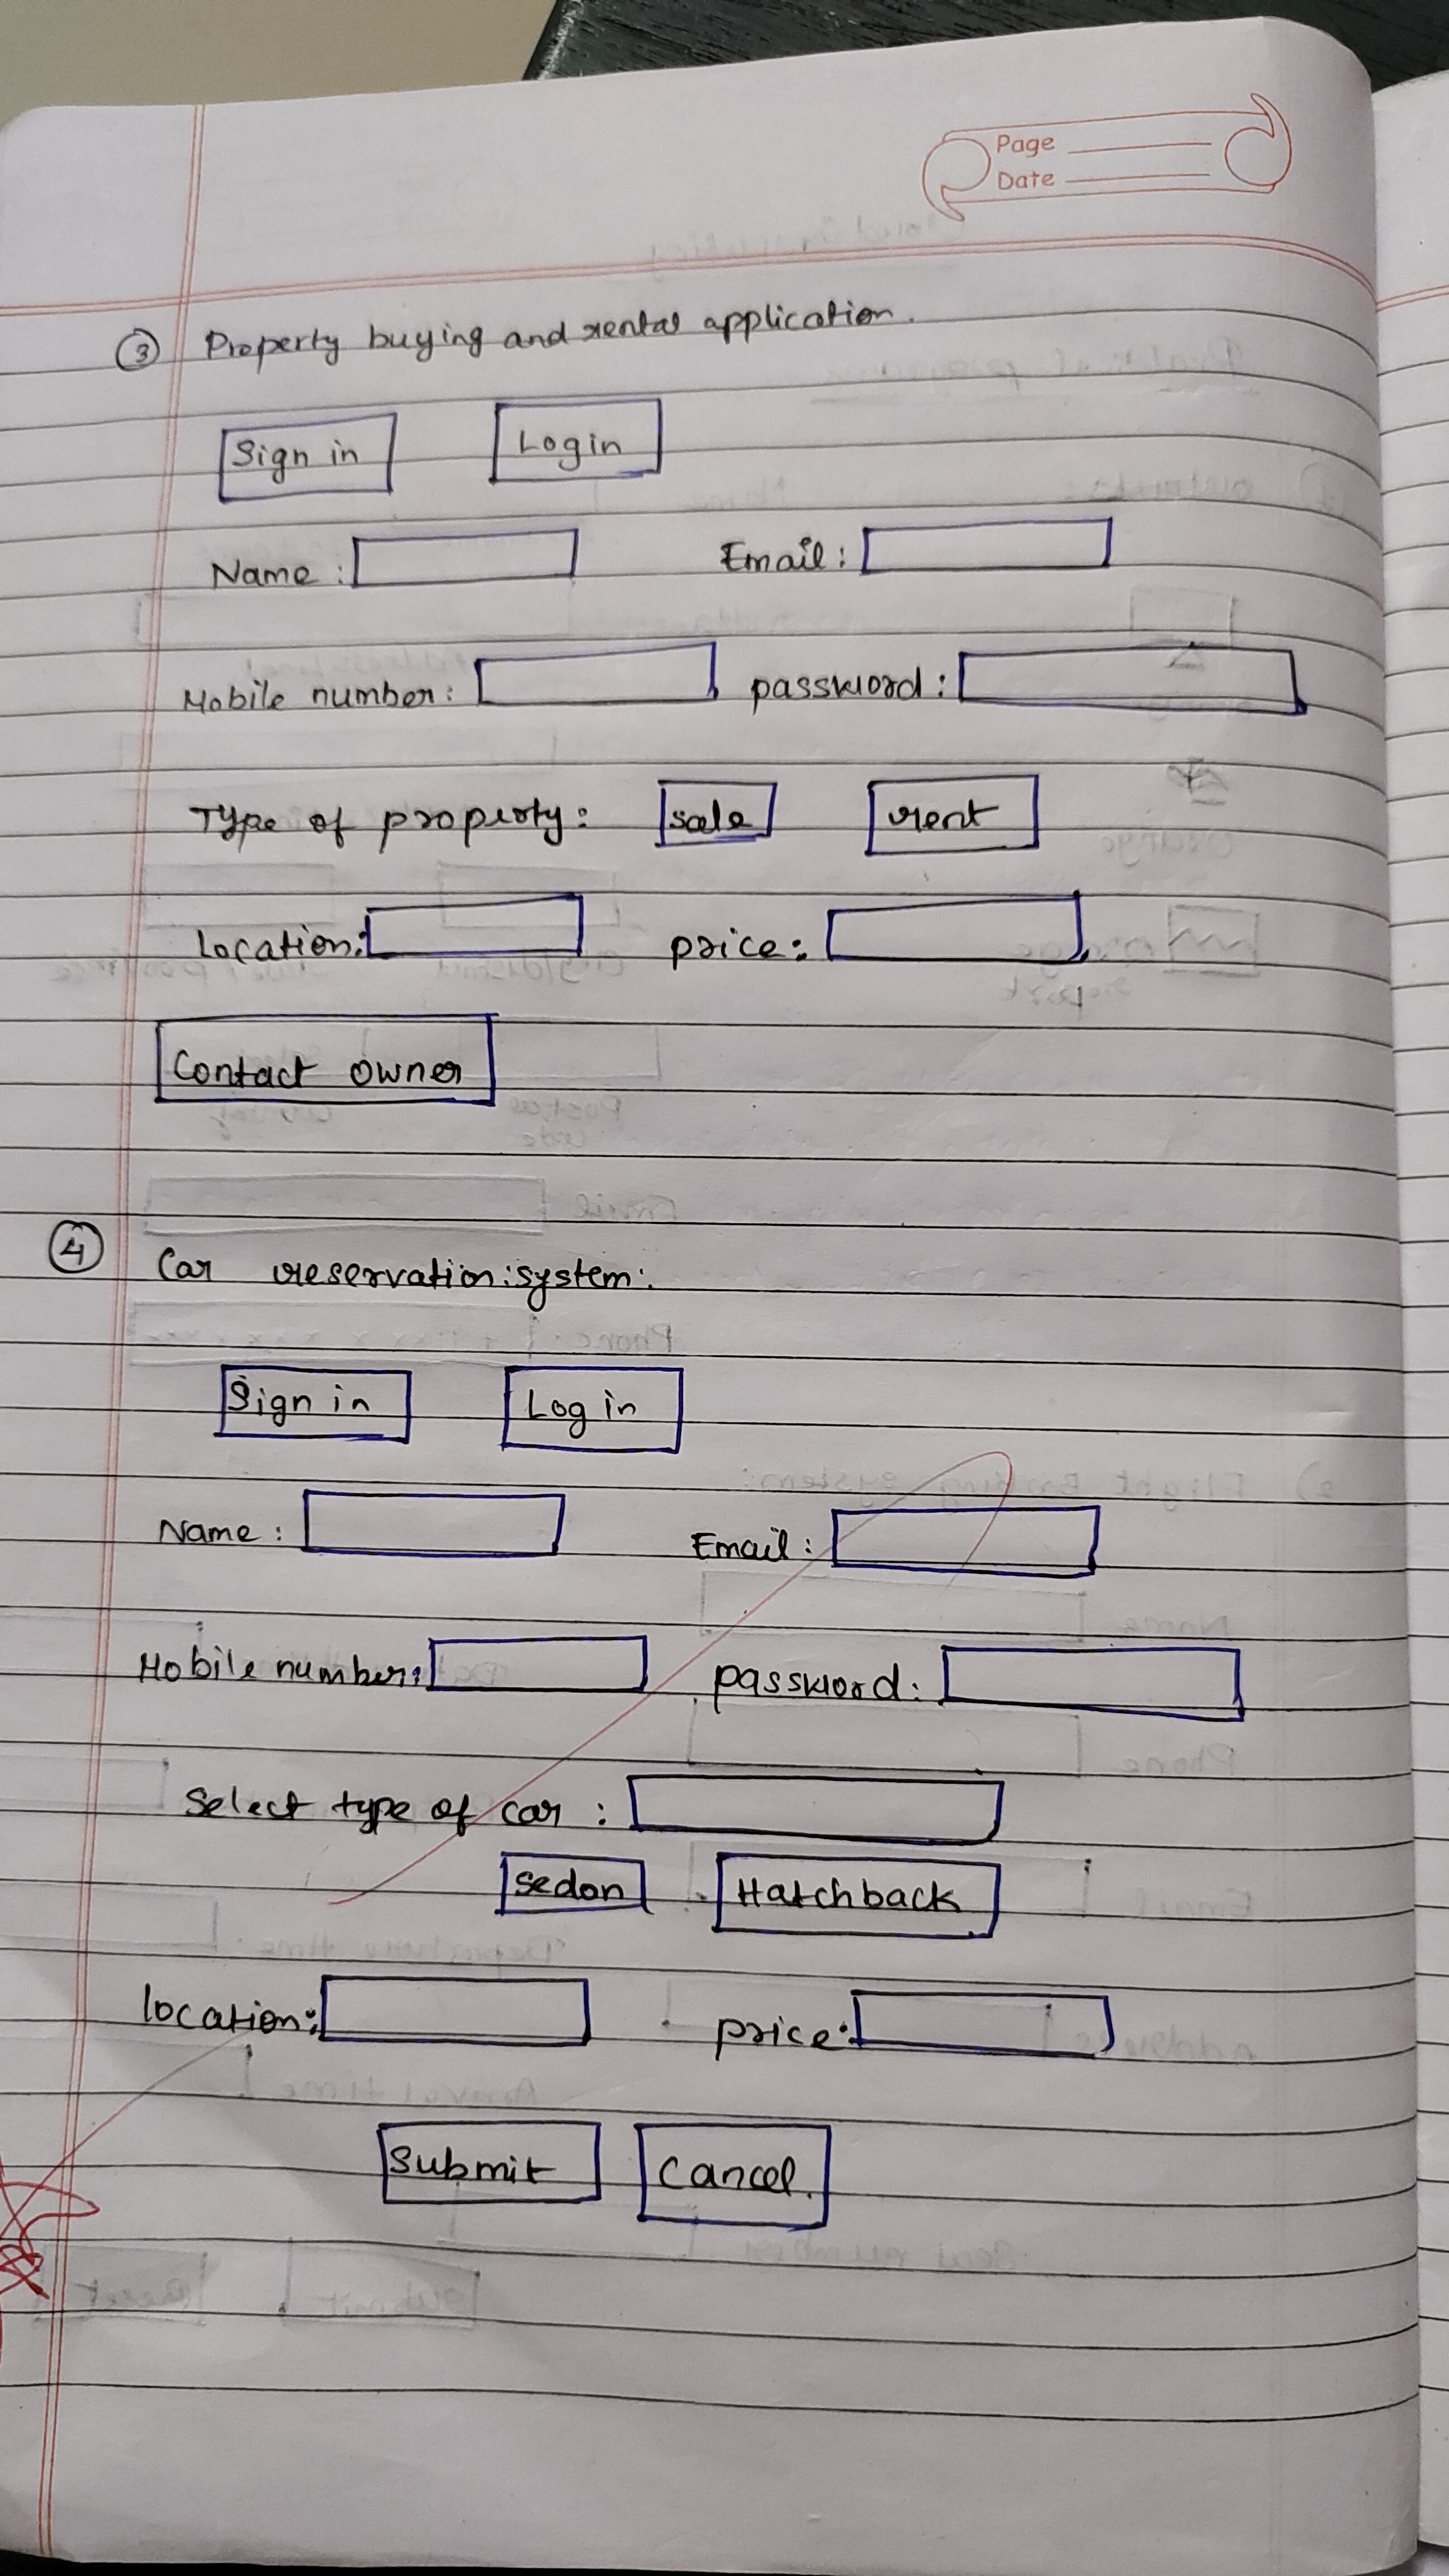 Page
Date
3 Property buying and rental application.
Sign in Login
Name : Email :
Mobile number : password :
Type of property : sale rent
Location : price :
Contact owner
4 Car reservation : system :
Sign in Log in
Name : Email :
Mobile number : password :
Select type of car :
Sedan Hatchback
location : price :
Submit Cancel.